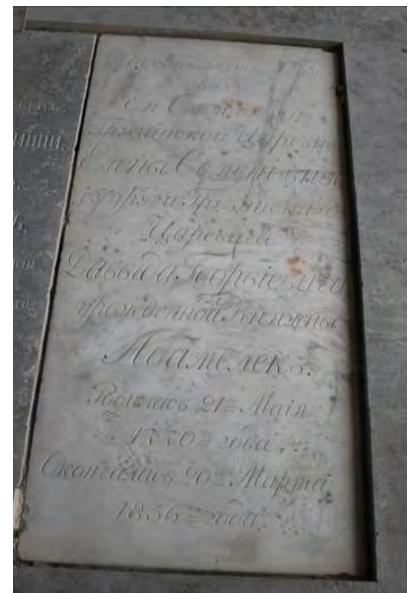 прахъ
Ея Свѣтлости
Грузинской Царевны
Елены Семеновны
супруги Грузинскаго
Царевича
Давыда Георгіевича
урожденной Княжны
Абамелекъ.
Родилась 21го Маія
1770го года.
Скончалась 20го Марта
1836го года.